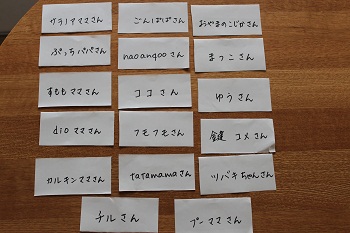 クラリアママさん
ごんぱぱさん
おやまのこじかさん
ぷっちパパさん
naoangoさん
まっこさん
すももママさん
ココさん
ゆうさん
dioママさん
フモフモさん
鍵 コメさん
カルキンママさん
tatamamaさん
ツバキちゃんさん
チルさん
プーママさん